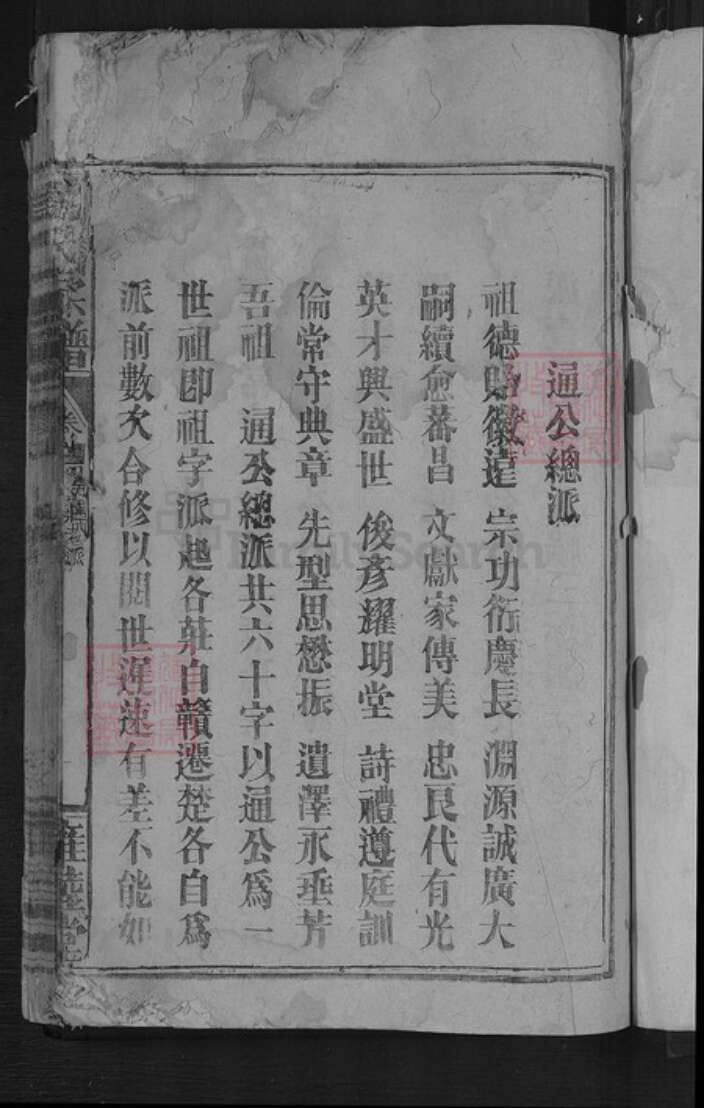 通公總派
祖德貽徽遠 宗功衍慶長 淵源誠廣大
嗣續愈蕃昌 文獻家傳美 忠良代有光
英才興盛世 俊彥耀明堂 詩禮遵庭訓
倫常守典章 先型思懋振 遺澤永垂芳
吾祖 通公總派共六十字以通公爲一
世祖即祖字派起各莊自贛遷楚各自爲
派前數次合修以閱世遲速有差不能如
宗譜
FamilySearch